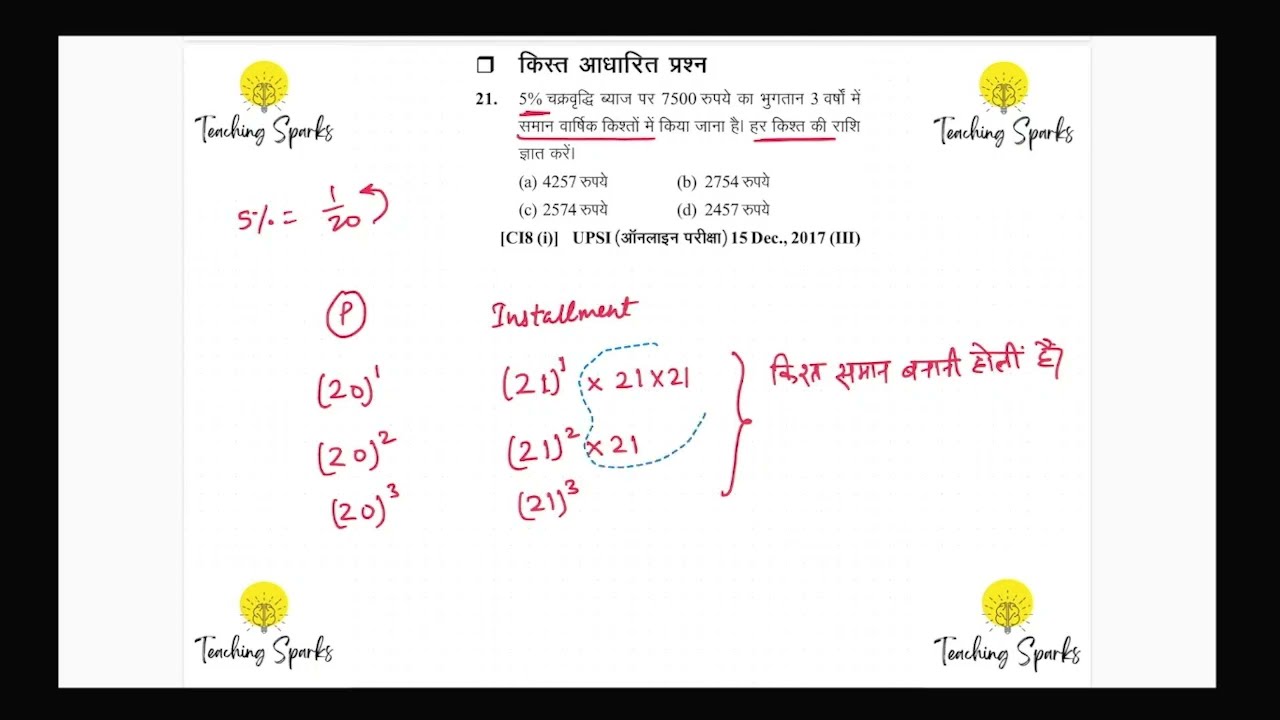 ❒ किस्त आधारित प्रश्न
Teaching Sparks
Teaching Sparks
21. 5% चक्रवृद्धि ब्याज पर 7500 रुपये का भुगतान 3 वर्षों में
समान वार्षिक किश्तों में किया जाना है। हर किश्त की राशि
ज्ञात करें।
(a) 4257 रुपये (b) 2754 रुपये
(c) 2574 रुपये (d) 2457 रुपये
[CI8 (i)] UPSI (ऑनलाइन परीक्षा) 15 Dec., 2017 (III)
5% = 1/20
P Installment
(20)¹ (21)¹ × 21 × 21
(20)² (21)² × 21
(20)³ (21)³
किश्त समान बनानी होती है।
Teaching Sparks
Teaching Sparks